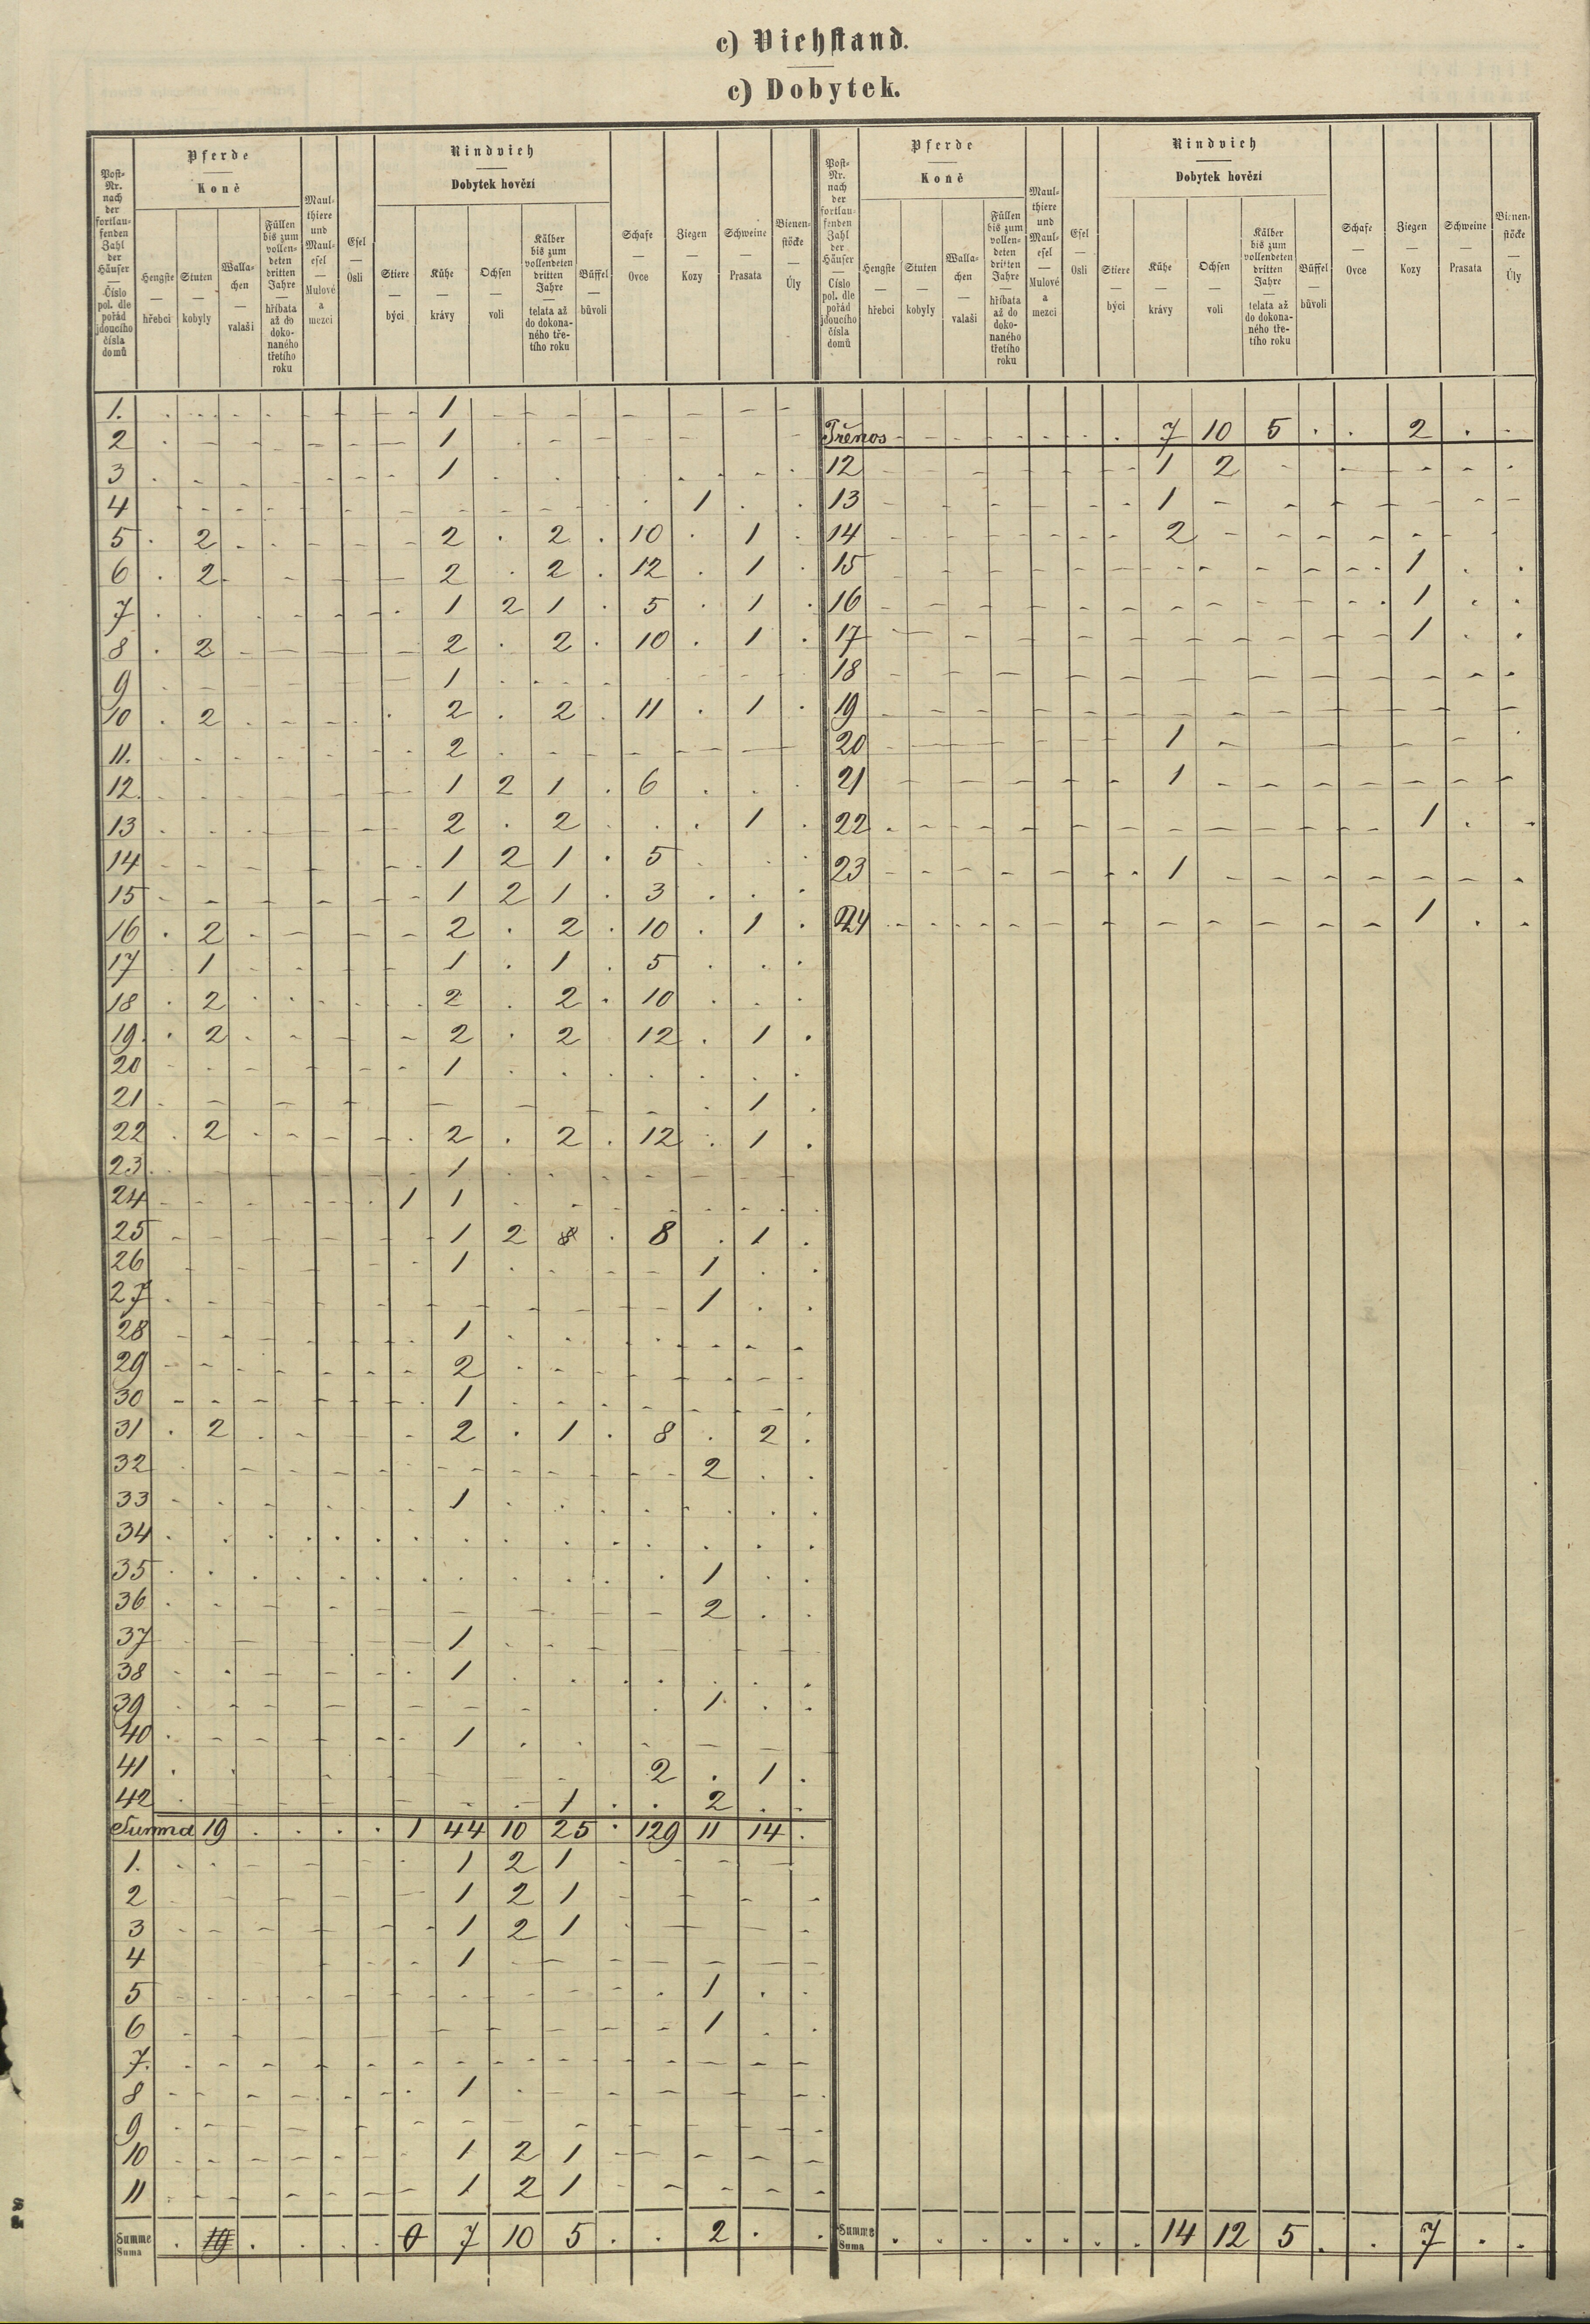 c) Viehstand.
c) Dobytek.
Post-Nr. nach der fortlaufenden Zahl der Häuser — Číslo pol. dle pořád jdoucího čísla domů
Pferde — Koně
Hengste — hřebci
Stuten — kobyly
Wallachen — valaši
Füllen bis zum vollendeten dritten Jahre — hříbata až do dokonaného třetího roku
Maulthiere und Maulesel — Mulové a mezci
Esel — Osli
Rindvieh — Dobytek hovězí
Stiere — býci
Kühe — krávy
Ochsen — voli
Kälber bis zum vollendeten dritten Jahre — telata až do dokonaného třetího roku
Büffel — bůvoli
Schafe — Ovce
Ziegen — Kozy
Schweine — Prasata
Bienenstöcke — Úly
1. 1
2 1
3 1
4 1
5 2 2 2 10 1
6 2 2 2 12 1
7 1 2 1 5 1
8 2 2 2 10 1
9 1
10 2 2 2 11 1
11. 2
12. 1 2 1 6
13 2 2 1
14 1 2 1 5
15 1 2 1 3
16 2 2 2 10 1
17 1 1 1 5
18 2 2 2 10
19. 2 2 2 12 1
20 1
21 1
22 2 2 2 12 1
23. 1
24 1 1
25 1 2 8 1
26 1 1
27 1
28 1
29 2
30 1
31 2 2 1 8 2
32 2
33 1
34
35 1
36 2
37 1
38 1
39 1
40 1
41 2 1
42 1 2
Summa 19 1 44 10 25 129 11 14
1. 1 2 1
2 1 2 1
3 1 2 1
4 1
5 1
6 1
7.
8 1
9
10 1 2 1
11 1 2 1
Summe Suma 19 0 7 10 5 2
Post-Nr. nach der fortlaufenden Zahl der Häuser — Číslo pol. dle pořád jdoucího čísla domů
Pferde — Koně
Hengste — hřebci
Stuten — kobyly
Wallachen — valaši
Füllen bis zum vollendeten dritten Jahre — hříbata až do dokonaného třetího roku
Maulthiere und Maulesel — Mulové a mezci
Esel — Osli
Rindvieh — Dobytek hovězí
Stiere — býci
Kühe — krávy
Ochsen — voli
Kälber bis zum vollendeten dritten Jahre — telata až do dokonaného třetího roku
Büffel — bůvoli
Schafe — Ovce
Ziegen — Kozy
Schweine — Prasata
Bienenstöcke — Úly
Přenos 7 10 5 2
12 1 2
13 1
14 2
15 1
16 1
17 1
18
19
20 1
21 1
22 1
23 1
24 1
Summe Suma 14 12 5 7